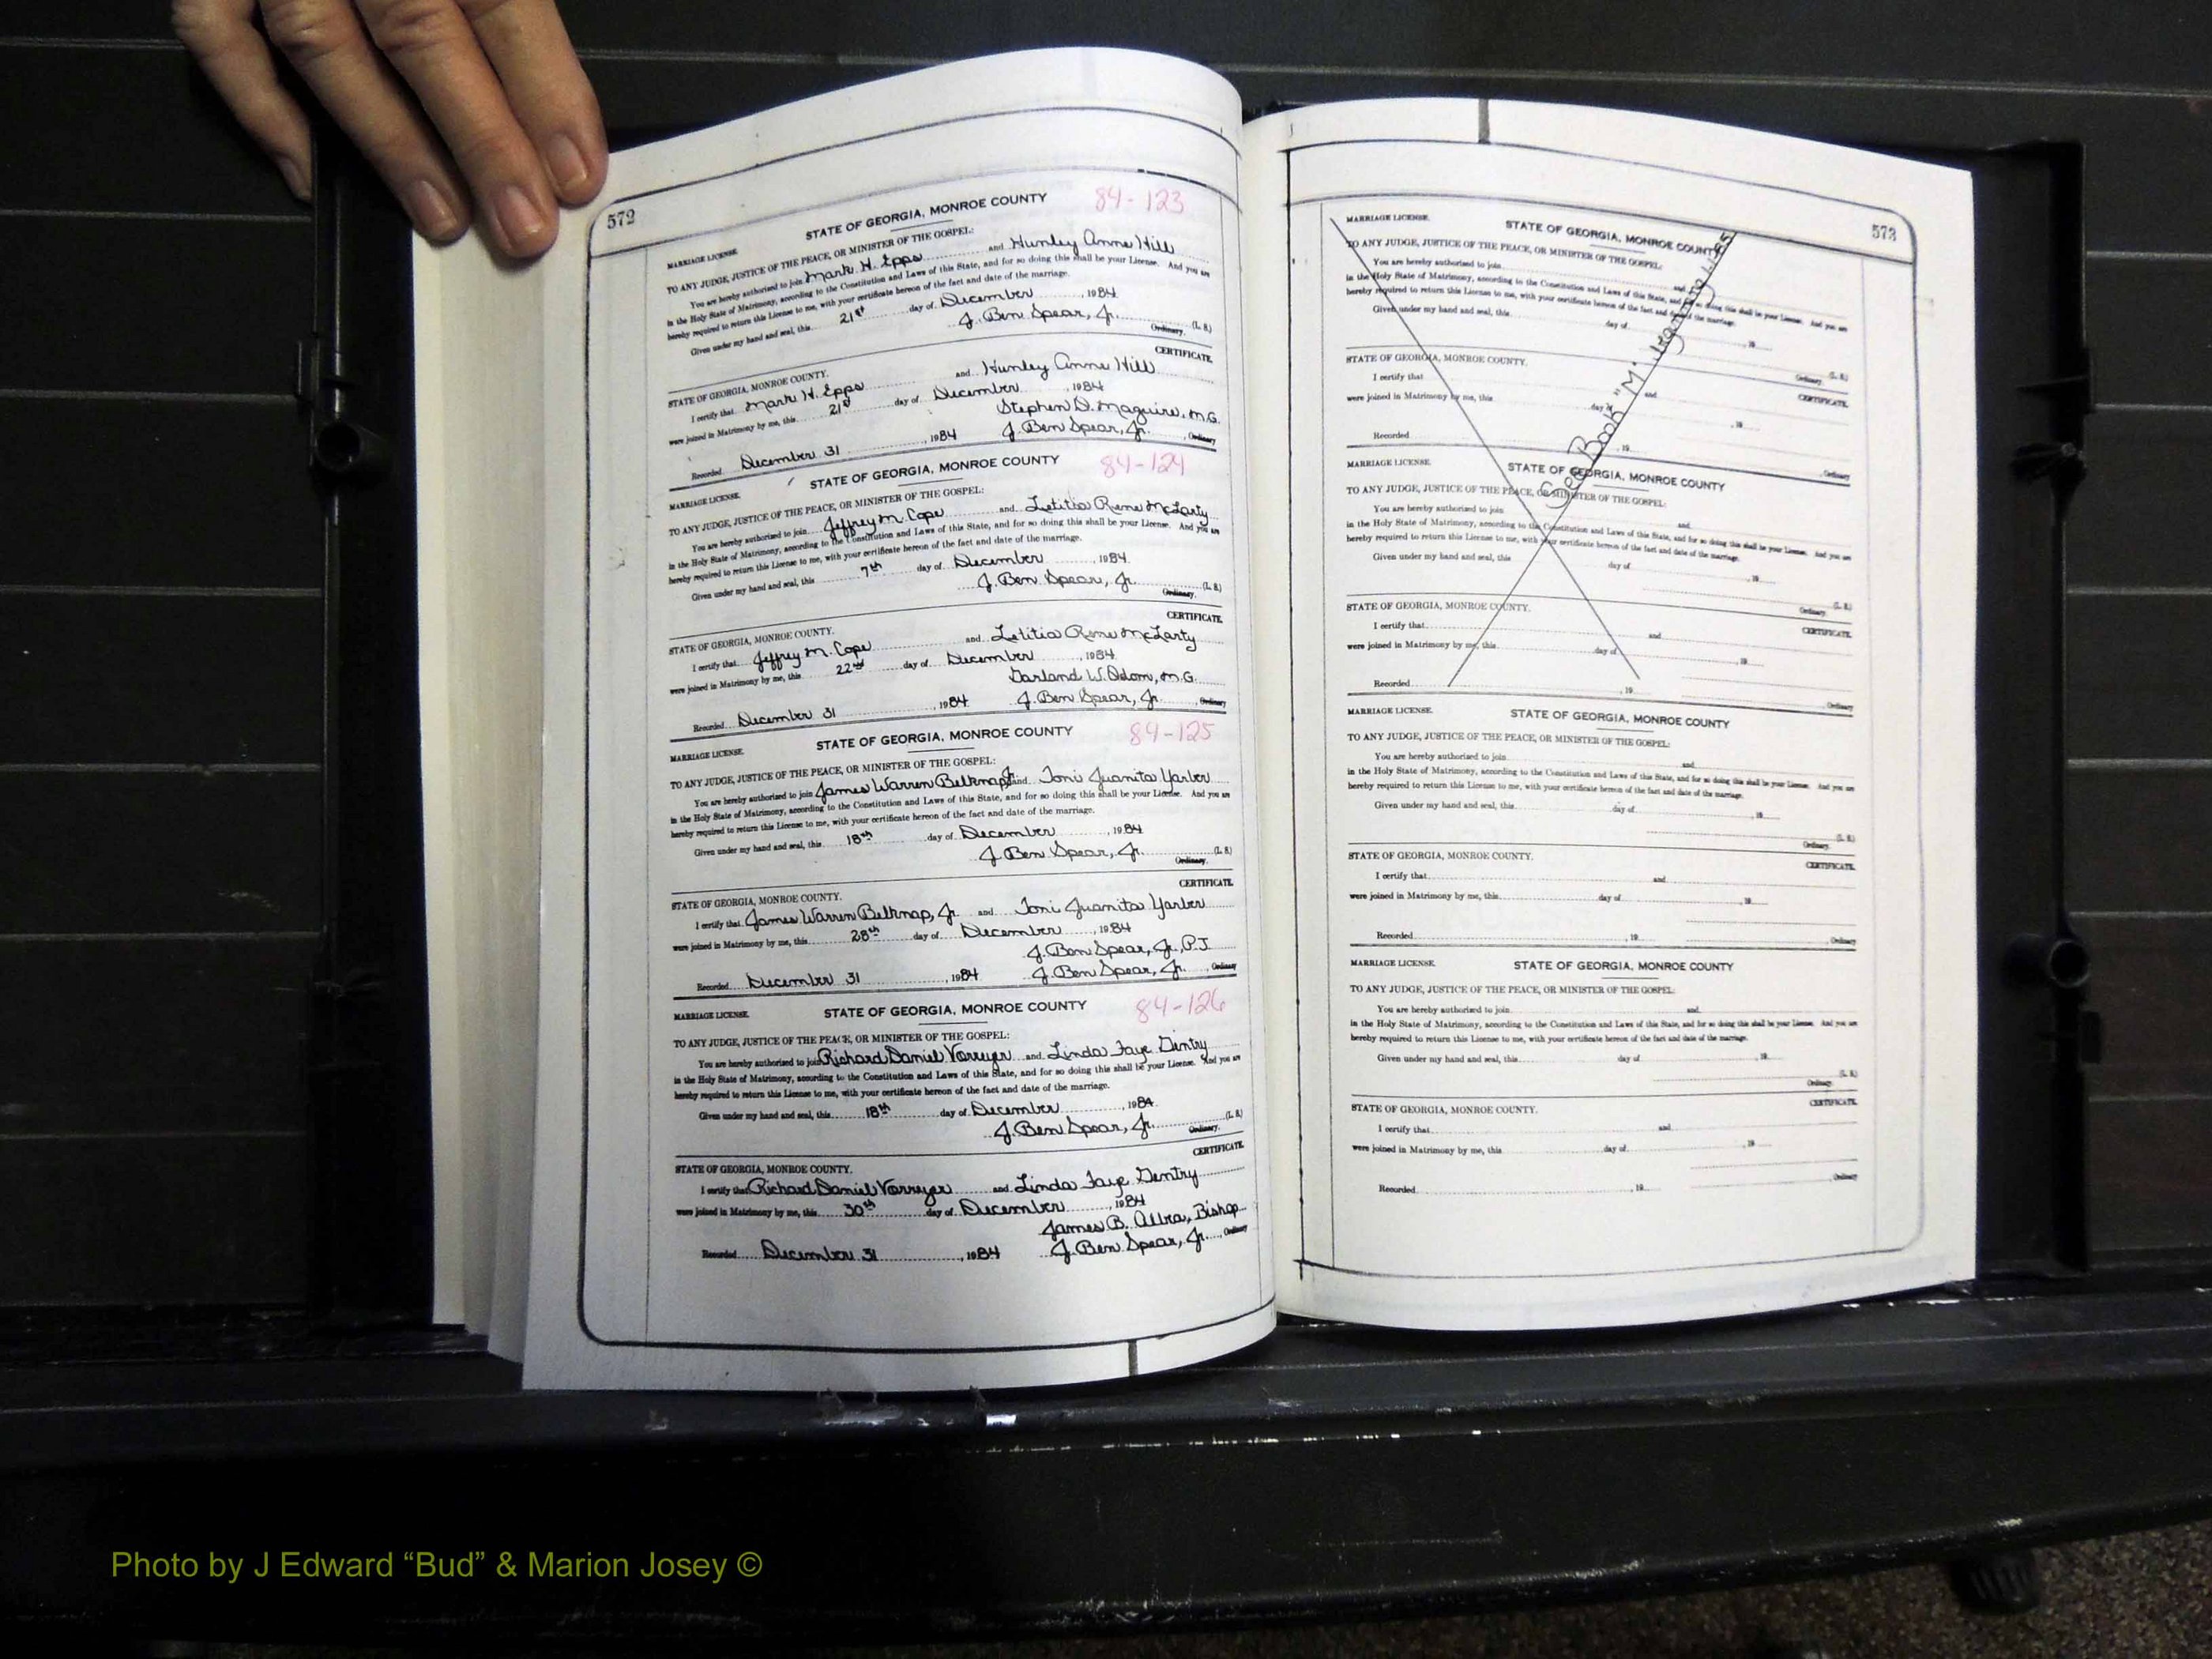 572
84-123
STATE OF GEORGIA, MONROE COUNTY
MARRIAGE LICENSE.
TO ANY JUDGE, JUSTICE OF THE PEACE, OR MINISTER OF THE GOSPEL:
You are hereby authorized to join Mark H. Epps and Hunley Anne Hill
in the Holy State of Matrimony, according to the Constitution and Laws of this State, and for so doing this shall be your License. And you are
hereby required to return this License to me, with your certificate hereon of the fact and date of the marriage.
Given under my hand and seal, this 21st day of December, 1984
J. Ben Spear, Jr. (L. S.)
Ordinary.
CERTIFICATE.
STATE OF GEORGIA, MONROE COUNTY.
I certify that Mark H. Epps and Hunley Anne Hill
were joined in Matrimony by me, this 21st day of December, 1984
Stephen D. Maguire, M.G.
Recorded December 31, 1984 J. Ben Spear, Jr., Ordinary
84-124
STATE OF GEORGIA, MONROE COUNTY
MARRIAGE LICENSE.
TO ANY JUDGE, JUSTICE OF THE PEACE, OR MINISTER OF THE GOSPEL:
You are hereby authorized to join Jeffrey M. Cope and Letitia Rene McLarty
in the Holy State of Matrimony, according to the Constitution and Laws of this State, and for so doing this shall be your License. And you are
hereby required to return this License to me, with your certificate hereon of the fact and date of the marriage.
Given under my hand and seal, this 7th day of December, 1984
J. Ben Spear, Jr. (L. S.)
Ordinary.
CERTIFICATE.
STATE OF GEORGIA, MONROE COUNTY.
I certify that Jeffrey M. Cope and Letitia Rene McLarty
were joined in Matrimony by me, this 22nd day of December, 1984
Garland W. Odom, M.G.
Recorded December 31, 1984 J. Ben Spear, Jr., Ordinary
84-125
STATE OF GEORGIA, MONROE COUNTY
MARRIAGE LICENSE.
TO ANY JUDGE, JUSTICE OF THE PEACE, OR MINISTER OF THE GOSPEL:
You are hereby authorized to join James Warren Belknap, Jr. and Toni Juanita Yarber
in the Holy State of Matrimony, according to the Constitution and Laws of this State, and for so doing this shall be your License. And you are
hereby required to return this License to me, with your certificate hereon of the fact and date of the marriage.
Given under my hand and seal, this 18th day of December, 1984
J. Ben Spear, Jr. (L. S.)
Ordinary.
CERTIFICATE.
STATE OF GEORGIA, MONROE COUNTY.
I certify that James Warren Belknap, Jr. and Toni Juanita Yarber
were joined in Matrimony by me, this 28th day of December, 1984
J. Ben Spear, Jr., P.J.
Recorded December 31, 1984 J. Ben Spear, Jr., Ordinary
84-126
STATE OF GEORGIA, MONROE COUNTY
MARRIAGE LICENSE.
TO ANY JUDGE, JUSTICE OF THE PEACE, OR MINISTER OF THE GOSPEL:
You are hereby authorized to join Richard Daniel and Linda Faye Gentry
in the Holy State of Matrimony, according to the Constitution and Laws of this State, and for so doing this shall be your License. And you are
hereby required to return this License to me, with your certificate hereon of the fact and date of the marriage.
Given under my hand and seal, this 18th day of December, 1984
J. Ben Spear, Jr. (L. S.)
Ordinary.
CERTIFICATE.
STATE OF GEORGIA, MONROE COUNTY.
I certify that Richard Daniel and Linda Faye Gentry
were joined in Matrimony by me, this 30th day of December, 1984
James B. Bishop
Recorded December 31, 1984 J. Ben Spear, Jr., Ordinary
573
See Book "M"
MARRIAGE LICENSE. STATE OF GEORGIA, MONROE COUNTY
TO ANY JUDGE, JUSTICE OF THE PEACE, OR MINISTER OF THE GOSPEL:
You are hereby authorized to join and
in the Holy State of Matrimony, according to the Constitution and Laws of this State, and for so doing this shall be your License. And you are
hereby required to return this License to me, with your certificate hereon of the fact and date of the marriage.
Given under my hand and seal, this day of , 19
(L. S.)
Ordinary.
STATE OF GEORGIA, MONROE COUNTY. CERTIFICATE.
I certify that and
were joined in Matrimony by me, this day of , 19
Recorded , 19 , Ordinary
MARRIAGE LICENSE. STATE OF GEORGIA, MONROE COUNTY
TO ANY JUDGE, JUSTICE OF THE PEACE, OR MINISTER OF THE GOSPEL:
You are hereby authorized to join and
in the Holy State of Matrimony, according to the Constitution and Laws of this State, and for so doing this shall be your License. And you are
hereby required to return this License to me, with your certificate hereon of the fact and date of the marriage.
Given under my hand and seal, this day of , 19
(L. S.)
Ordinary.
STATE OF GEORGIA, MONROE COUNTY. CERTIFICATE.
I certify that and
were joined in Matrimony by me, this day of , 19
Recorded , 19 Ordinary
MARRIAGE LICENSE. STATE OF GEORGIA, MONROE COUNTY
TO ANY JUDGE, JUSTICE OF THE PEACE, OR MINISTER OF THE GOSPEL:
You are hereby authorized to join and
in the Holy State of Matrimony, according to the Constitution and Laws of this State, and for so doing this shall be your License. And you are
hereby required to return this License to me, with your certificate hereon of the fact and date of the marriage.
Given under my hand and seal, this day of , 19
(L. S.)
Ordinary.
STATE OF GEORGIA, MONROE COUNTY. CERTIFICATE.
I certify that and
were joined in Matrimony by me, this day of , 19
Recorded , 19 Ordinary
MARRIAGE LICENSE. STATE OF GEORGIA, MONROE COUNTY
TO ANY JUDGE, JUSTICE OF THE PEACE, OR MINISTER OF THE GOSPEL:
You are hereby authorized to join and
in the Holy State of Matrimony, according to the Constitution and Laws of this State, and for so doing this shall be your License. And you are
hereby required to return this License to me, with your certificate hereon of the fact and date of the marriage.
Given under my hand and seal, this day of , 19
(L. S.)
Ordinary.
STATE OF GEORGIA, MONROE COUNTY. CERTIFICATE.
I certify that and
were joined in Matrimony by me, this day of , 19
Recorded , 19 Ordinary
Photo by J Edward “Bud” & Marion Josey ©